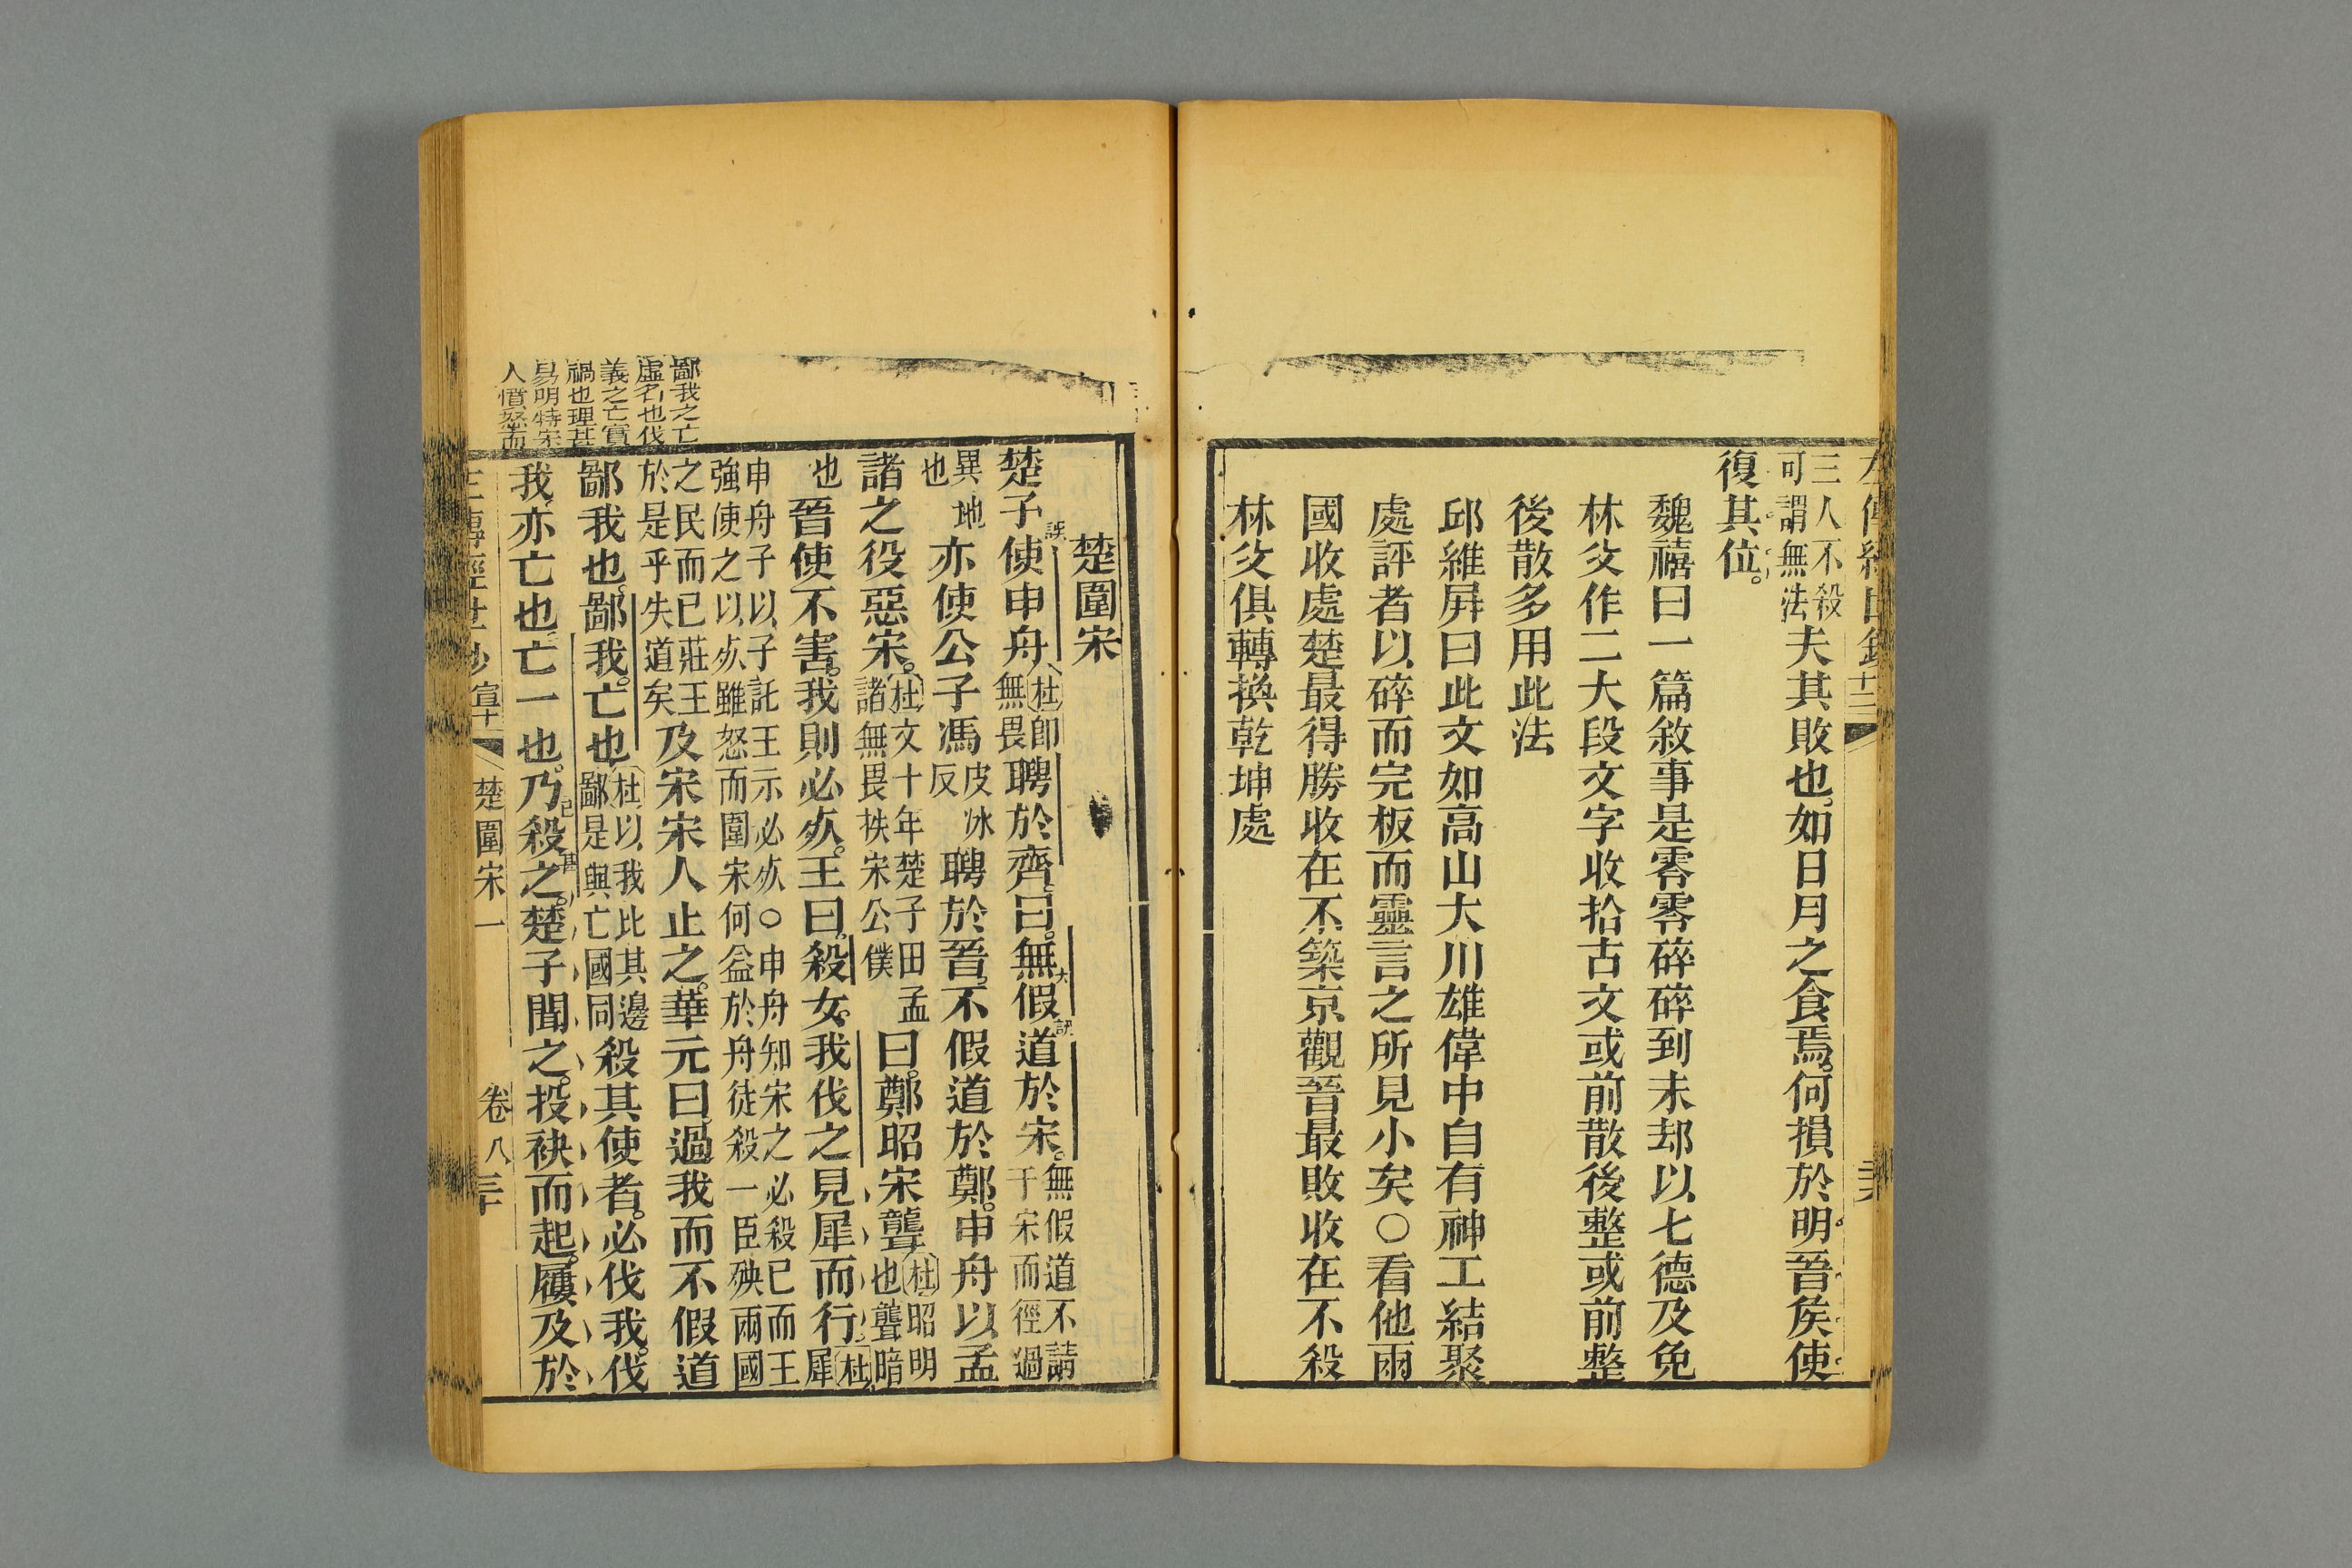 三人不殺
可謂無法
夫其敗也如日月之食焉何損於明晉侯使
復其位
魏禧曰一篇敘事是零零碎碎到末却以七德及免
林父作二大段文字收拾古文或前散後整或前整
後散多用此法
邱維屏曰此文如高山大川雄偉中自有神工結聚
處評者以碎而完板而靈言之所見小矣○看他兩
國收處楚最得勝收在不築京觀晉最敗收在不殺
林父俱轉換乾坤處
楚圍宋
楚子使申舟
杜卽
無畏
聘於齊曰無假道於宋
無假道不請
于宋而徑過
異地
也
亦使公子馮
皮冰
反
聘於晉不假道於鄭申舟以孟
諸之役惡宋
杜文十年楚子田孟
諸無畏抶宋公僕
曰鄭昭宋聾
杜昭明
也聾暗
也
晉使不害我則必死王曰殺女我伐之見犀而行
杜
犀
申舟子以子託王示必死○申舟知宋之必殺已而王
強使之以死雖怒而圍宋何益於舟徒殺一臣殃兩國
之民而已莊王
於是乎失道矣
及宋宋人止之華元曰過我而不假道
鄙我也鄙我亡也
杜以我比其邊
鄙是與亡國同
殺其使者必伐我伐
我亦亡也亡一也乃殺之楚子聞之投袂而起屨及於
鄙我之亡
虛名也伐
義之亡實
禍也理甚
易明特宋
人憤怒而
宣十
楚圍宋一
卷八